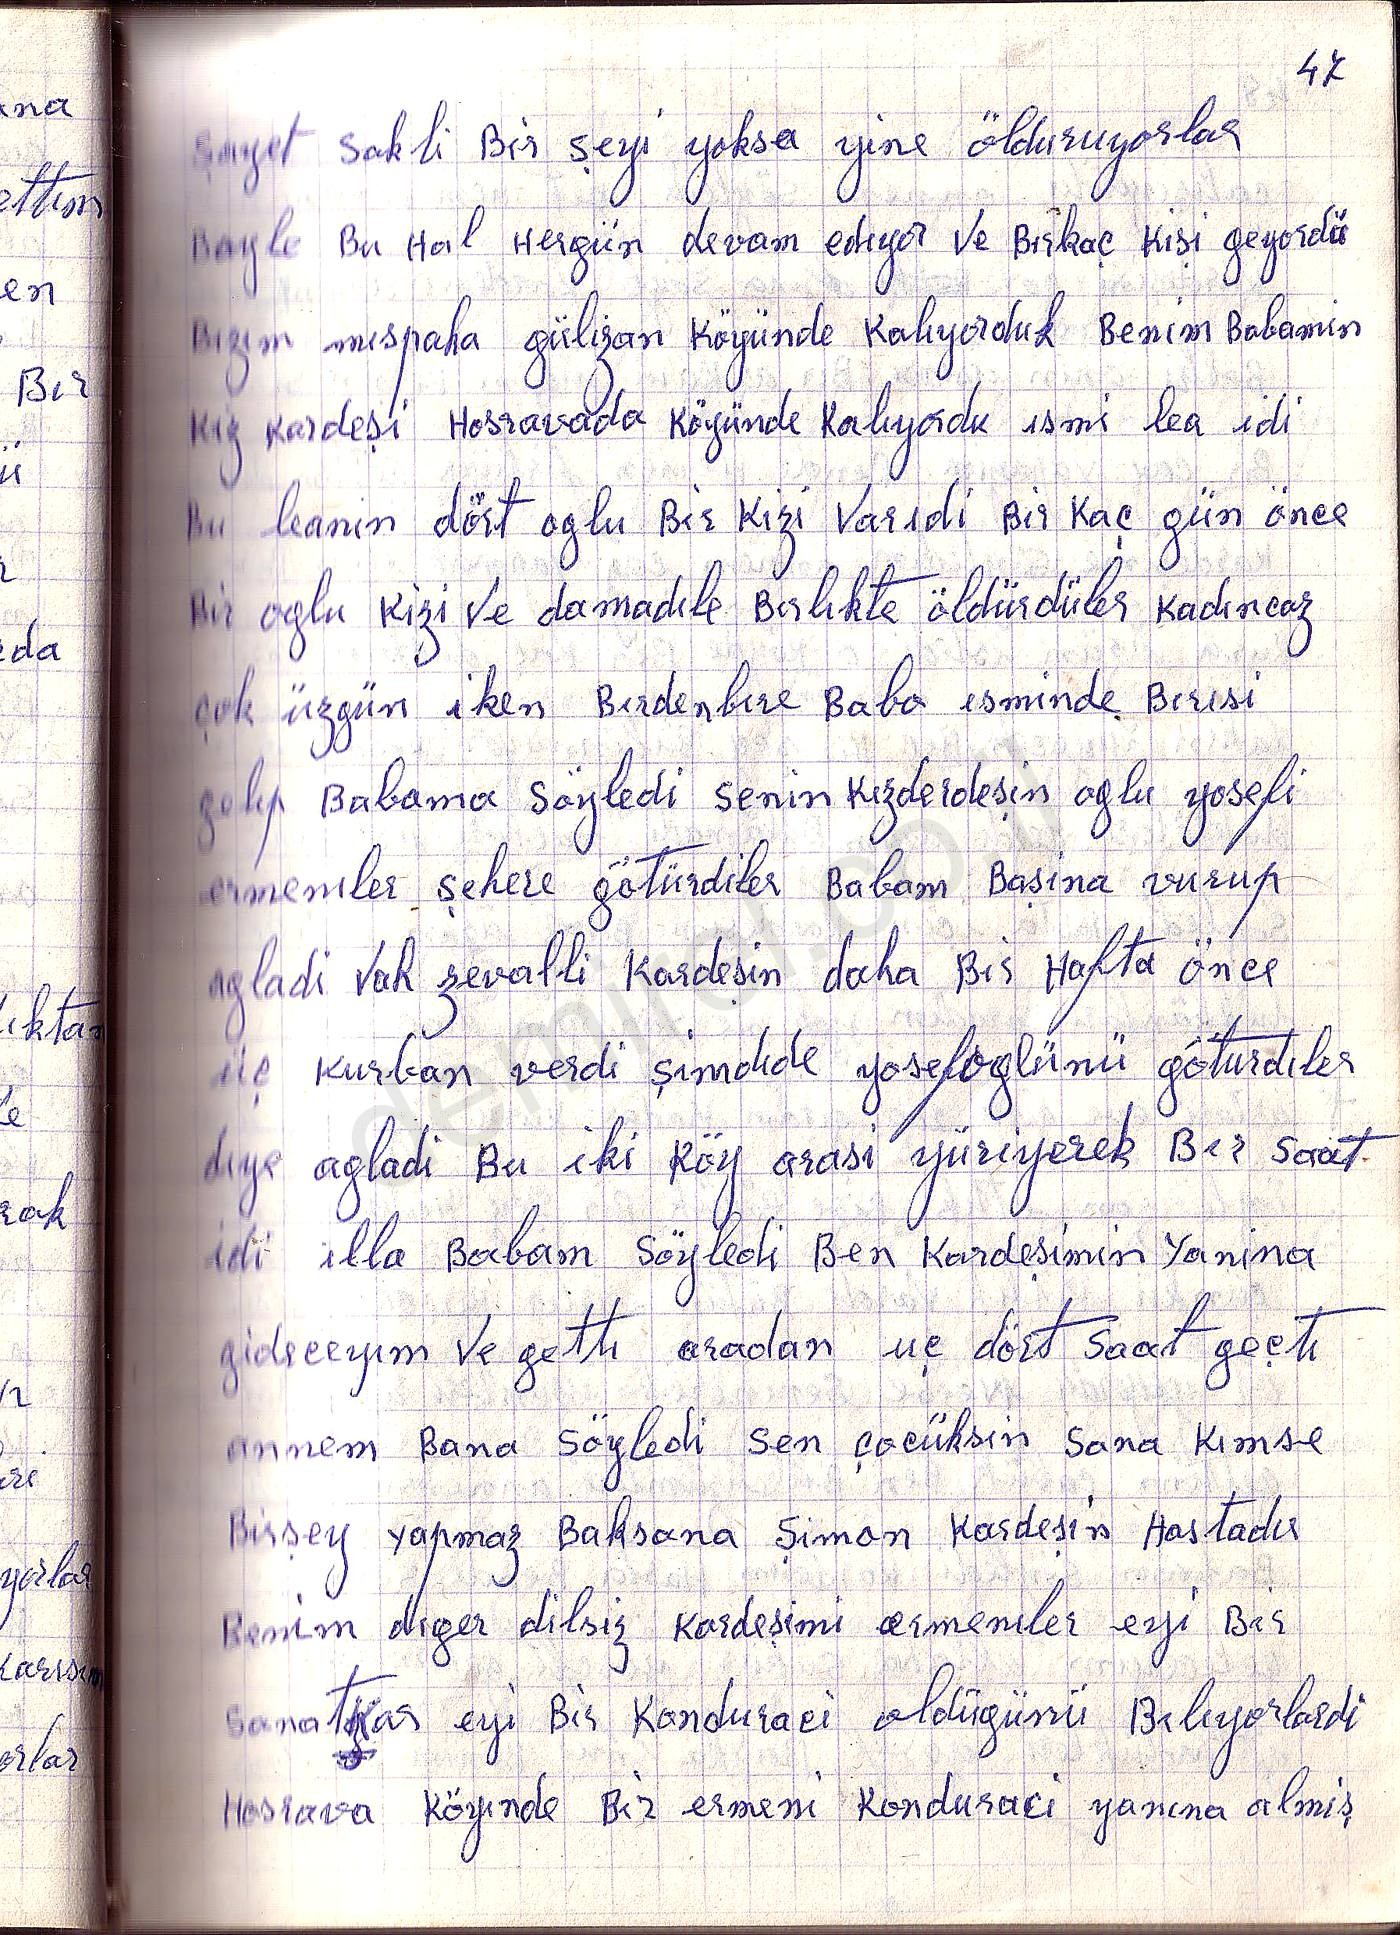 47
Şayet Sakli Bir Şeyi yoksa yine öldürüyorlar
Böyle Bu Hal Hergün devam ediyor Ve Birkaç Kişi geyordü
Bizim mispaha gülizan Köyünde Kalıyorduk Benim Babamin
Kiz Kardeşi Hosravada Köyünde Kalıyordu ismi lea idi
Bu leanin dört oglu Bir Kizi Varidi Bir Kaç gün önce
Bir oglu Kizi Ve damadile Birlikte öldürdüler Kadıncaz
çok üzgün iken Birdenbire Babo isminde Birisi
gelip Babama Söyledi Senin Kızderdeşin oglu yosefi
ermeniler şehere götürdiler Babam Başina vurup
agladi Vah zevalli Kardeşin daha Bir Hafta önce
üç Kurban verdi şimdide yosefoglünü göturdiler
diye agladi Bu iki Köy arasi yüriyerek Bir Saat
idi illa Babam Söyledi Ben Kardeşimin Yanina
gideceyim Ve getti aradan uç dört Saat geçti
annem Bana Söyledi Sen çocüksin Sana Kimse
Birşey yapmaz Baksana Şimon Kardeşin Hastadır
Benim diger dilsiz Kardeşimi ermeniler eyi Bir
Sanatkar eyi Bir Konduraci oldügünü Biliyorlardi
Hosrava Köyinde Bir ermeni Konduraci yanina almiş
demirel.co.il
ettim
en
Bir
rak
yorlar
orlar